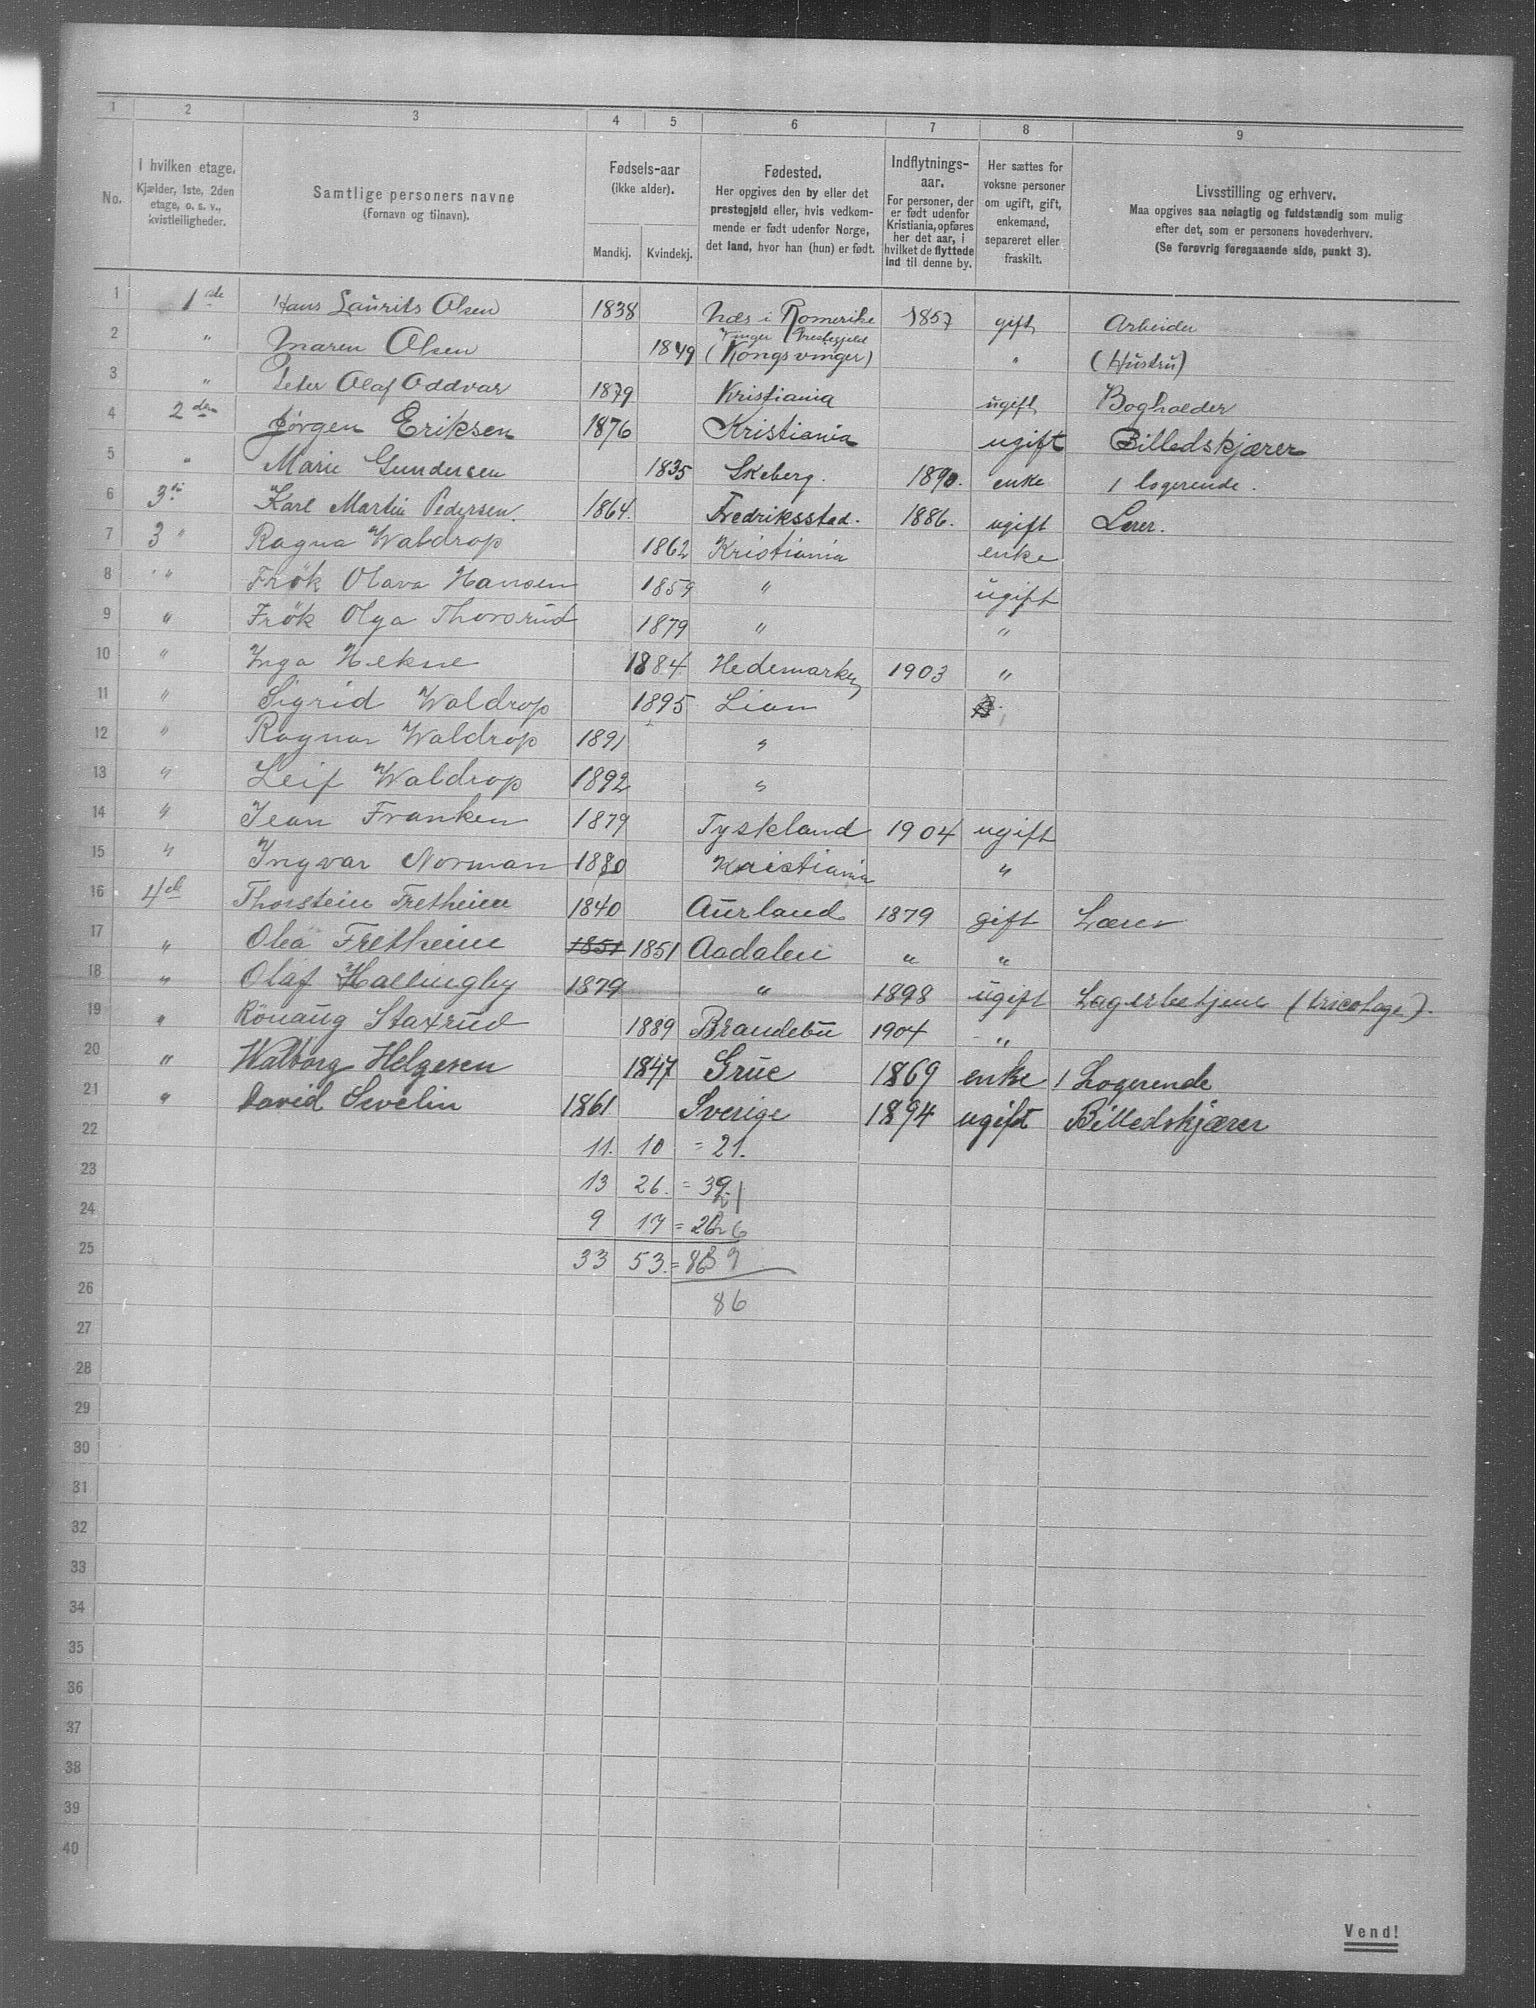 1 2 3 4 5 6 7 8 9
No.
I hvilken etage.
Kjælder, 1ste, 2den etage, o. s. v., kvistleiligheder.
Samtlige personers navne
(Fornavn og tilnavn).
Fødsels-aar
(ikke alder).
Mandkj. Kvindekj.
Fødested.
Her opgives den by eller det prestegjeld eller, hvis vedkommende er født udenfor Norge, det land, hvor han (hun) er født.
Indflytnings-aar.
For personer, der er født udenfor Kristiania, opføres her det aar, i hvilket de flyttede ind til denne by.
Her sættes for voksne personer om ugift, gift, enkemand, separeret eller fraskilt.
Livsstilling og erhverv.
Maa opgives saa nøiagtig og fuldstændig som mulig efter det, som er personens hovederhverv.
(Se forøvrig foregaaende side, punkt 3).
1 1ste Hans Laurits Olsen 1838 Næs i Romerike 1857 gift Arbeider
2 " Maren Olsen 1849 Vinger Prestegjeld (Kongsvinger) " (Hustru)
3 " Peter Olaf Oddvar 1879 Kristiania ugift Bogholder
4 2den Jörgen Eriksen 1876 Kristiania ugift Billedskjærer
5 " Marie Gundersen 1835 Skeberg. 1890. enke 1 logerende.
6 3di Karl Martin Pedersen. 1864. Fredriksstad. 1886. ugift Lærer.
7 3 " Ragna Waldrop 1862 Kristiania enke
8 " Frök Olava Hansen 1859 " ugift
9 " Frök Olga Thorsrud 1879 " "
10 " Inga Hekne 1884 Hedemarken 1903 "
11 " Sigrid Waldrop 1895 Lian
12 " Ragnar Waldrop 1891 "
13 " Leif Waldrop 1892 "
14 " Jean Franken 1879 Tyskland 1904 ugift
15 " Ingvar Norman 1880 Kristiania "
16 4de Thorstein Fretheim 1840 Aurland 1879 gift Lærer
17 " Olea Fretheim 1851 1851 Aadalen " "
18 " Olaf Hallingby 1879 " 1898 ugift Lagerbetjent (tricotage).
19 " Rönaug Staxrud 1889 Brandebu 1904 "
20 " Walborg Helgesen 1847 Grue 1869 enke 1 Logerende
21 " David Sevelin 1861 Sverige 1894 ugift Billedskjærer
22 11. 10 = 21.
23 13 26. = 39.
24 9 17 = 26
25 33 53. = 86
26 86
27
28
29
30
31
32
33
34
35
36
37
38
39
40
Vend!